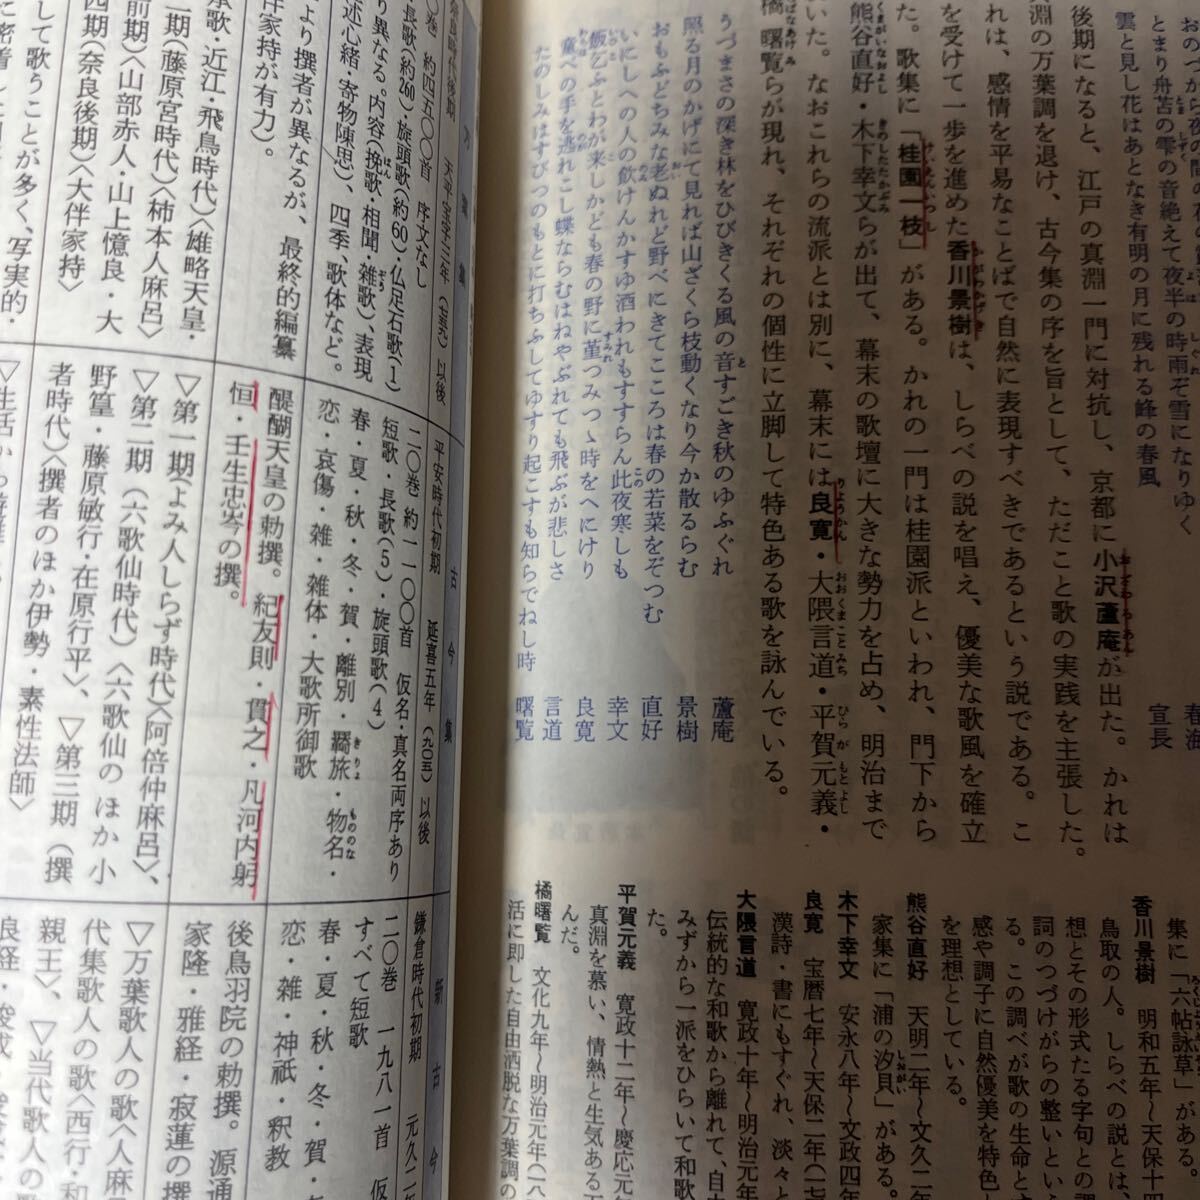 おのづから夜の間の
とまり舟苫の雫の音絶えて夜半の時雨ぞ雪になりゆく
雲と見し花はあとなき有明の月に残れる峰の春風
春海
宣長
後期になると、江戸の真淵一門に対抗し、京都に小沢蘆庵が出た。かれは
淵の万葉調を退け、古今集の序を旨として、ただこと歌の実践を主張した。
れは、感情を平易なことばで自然に表現すべきであるという説である。こ
を受けて一歩を進めた香川景樹は、しらべの説を唱え、優美な歌風を確立
た。歌集に「桂園一枝」がある。かれの一門は桂園派といわれ、門下から
熊谷直好・木下幸文らが出て、幕末の歌壇に大きな勢力を占め、明治まで
いた。なおこれらの流派とは別に、幕末には良寛・大隈言道・平賀元義・
橘曙覧らが現れ、それぞれの個性に立脚して特色ある歌を詠んでいる。
うづまさの深き林をひびきくる風の音すごき秋のゆふぐれ 蘆庵
照る月のかげにて見れば山ざくら枝動くなり今か散るらむ 景樹
おもふどちみな老ぬれど野べにきてこころは春の若菜をぞつむ 直好
いにしへの人の飲けんかすゆ酒われもすすらん此夜寒しも 幸文
飯乞ふとわが来しかども春の野に菫つみつゝ時をへにけり 良寛
童べの手を逃れこし蝶ならむはねやぶれても飛ぶが悲しさ 言道
たのしみはすびつのもとに打ちふしてゆすり起こすも知らでねし時 曙覧
集に「六帖詠草」がある。
香川景樹 明和五年〜天保十
鳥取の人。しらべの説とは、
想とその形式たる字句との調
詞のつづけがらの整いとい
る。この調べが歌の生命と
感や調子に自然優美を特色
を理想としている。
熊谷直好 天明二年〜文久二年
家集に「浦の汐貝」がある。
木下幸文 安永八年〜文政四年
良寛 宝暦七年〜天保二年(一七
漢詩・書にもすぐれ、淡々と
大隈言道 寛政十年〜明治元年
伝統的な和歌から離れて、自
みずから一派をひらいて和歌
た。
平賀元義 寛政十二年〜慶応元年
真淵を慕い、情熱と生気ある万
んだ。
橘曙覧 文化九年〜明治元年(一八
活に即した自由洒脱な万葉調の
万葉集
奈良時代後期 天平宝字三年(七五九)以後
〇巻 約四五〇〇首 序文なし
長歌(約260)・旋頭歌(約60)・仏足石歌(1)
り異なる。内容(挽歌・相聞・雑歌)、表現
述心緒・寄物陳思)、四季、歌体など。
より撰者が異なるが、最終的編纂
伴家持が有力)。
承歌・近江・飛鳥時代〉〈雄略天皇・
一期(藤原宮時代)〈柿本人麻呂〉
前期)〈山部赤人・山上憶良・大
四期(奈良後期)〈大伴家持〉
して歌うことが多く、写実的・
古今集
平安時代初期 延喜五年(九〇五)以後
二〇巻 約一一〇〇首 仮名・真名両序あり
短歌・長歌(5)・旋頭歌(4)
春・夏・秋・冬・賀・離別・羇旅・物名・
恋・哀傷・雑・雑体・大歌所御歌
醍醐天皇の勅撰。紀友則・貫之・凡河内躬
恒・壬生忠岑の撰。
▽第一期(よみ人しらず時代)〈阿倍仲麻呂〉、
▽第二期(六歌仙時代)〈六歌仙のほか小
野篁・藤原敏行・在原行平〉、▽第三期(撰
者時代)〈撰者のほか伊勢・素性法師〉
新古今
鎌倉時代初期 元久二年
二〇巻 一九八一首 仮
すべて短歌
春・夏・秋・冬・賀・
恋・雑・神祇・釈教
後鳥羽院の勅撰。源通
家隆・雅経・寂蓮の撰
▽万葉歌人の歌〈人麻
代集歌人の歌〈西行・和
親王〉、▽当代歌人の